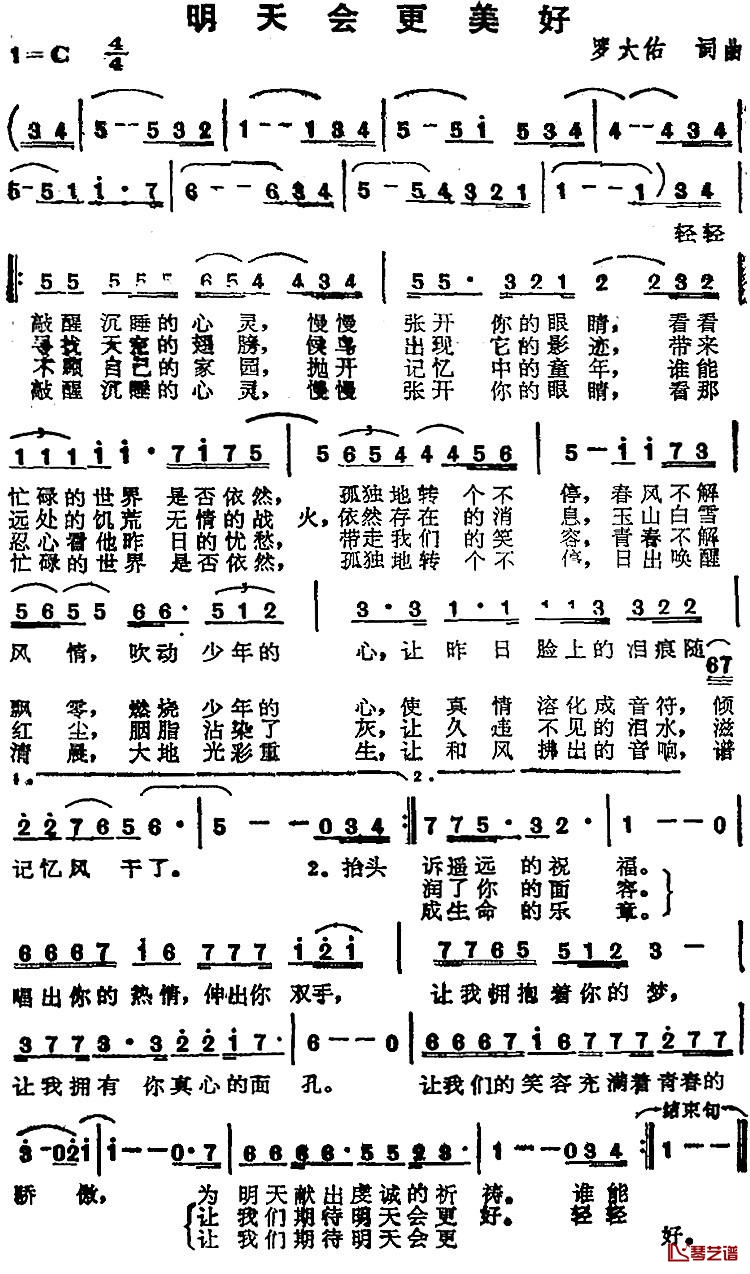 明天会更美好
1=C 4/4 罗大佑 词曲
(34 5--532 1--134 5--5i 534 4--434
5-51i·7 6--634 5-54321 1--1) 34
轻轻
55 555 654 434 55· 321 2 232
敲醒沉睡的心灵，慢慢 张开 你的眼睛，看看
寻找天空的翅膀，候鸟 出现 它的影迹，带来
不顾自己的家园，抛开 记忆 中的童年，谁能
敲醒沉睡的心灵，慢慢 张开 你的眼睛，看那
3 3
111 ii·7i75 5654 4456 5-ii73
忙碌的世界 是否依然， 孤独地转 个不 停，春风不解
远处的饥荒 无情的战 火，依然存在 的消 息，玉山白雪
忍心看他昨 日的忧愁， 带走我们 的笑 容，青春不解
忙碌的世界 是否依然， 孤独地转 个不 停，日出唤醒
3
5655 66· 512 3·3 1·1 113 322
风 情，吹动 少年的 心，让 昨 日 脸上的 泪痕随
67
飘 零，燃烧 少年的 心，使 真 情 溶化成音符，倾
红 尘，胭脂 沾染了 灰，让 久 违 不见的泪水，滋
清 晨，大地 光彩重 生，让 和 风 拂出的音响，谱
1。 2。
227656· 5--034 775·32· 1--0
记忆风 干了。 2。抬头 诉遥远 的祝 福。
润了你 的面 容。
成生命 的乐 章。
6667 i6 777 i2i 7765 512 3-
唱出你的 热情，伸出你 双手， 让我拥抱着你的 梦，
3773·3 22i7· 6--0 6667i6777 277
让我拥有 你真心的面 孔。 让我们的笑容充满着青春的
结束句
3-02i i--0·7 6666·5523· 1--034 1--
骄 傲， 为 明天献出虔诚的祈 祷。 谁能
让 我们期待明天会更 好。 轻轻
让 我们期待明天会更 好。
琴艺谱